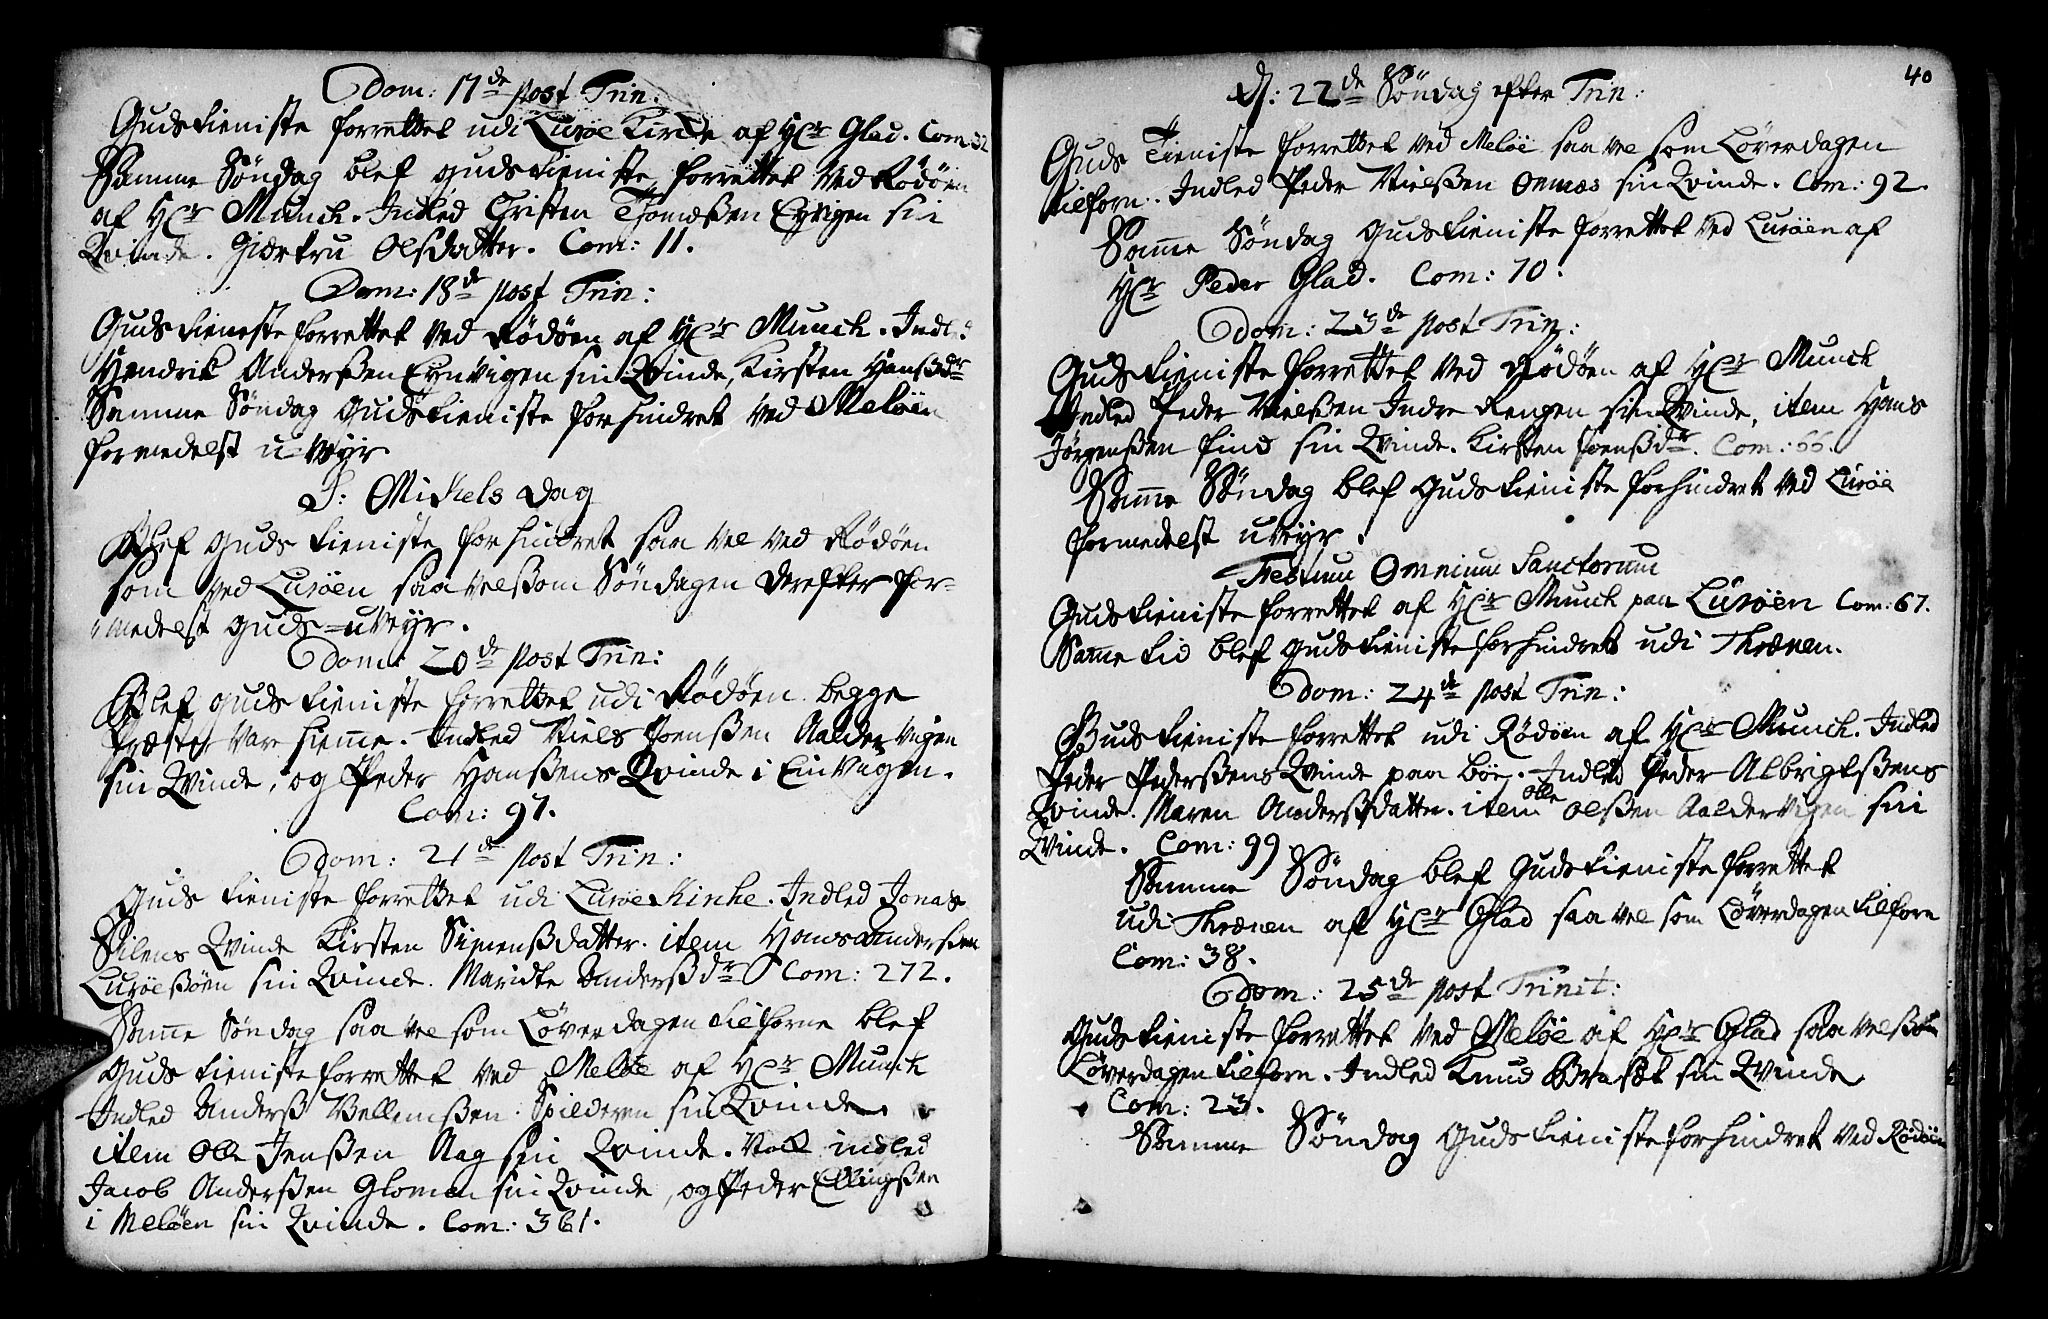 Dom: 17de post Trin:
Guds tieniste forrettet udi Lurøe Kirche af Hr Glad. Com: 32
Samme Søndag blef guds tieniste forrettet ved Rødøen
af Hr Munch. Indled Christen Thomæßen Eyvigen sin
Qvinde. Giærtru Olsdatter. Com: 11.
Dom: 18de post Trin:
Guds tieneste forrettet ved Rødøen af Hr Munch. Indled
Hendrik Anderßen Eynvigen sin Qvinde, Kirsten Hansdr
Samme Søndag Guds tieniste forhindret ved Meløen
formedelst u-Veyr
S: Mikels Dag
Blef Guds tieniste forhindret saa vel ved Rødøen
som ved Lurøen saa velsom Søndagen derefter for-
medelst guds-uVeyr.
Dom: 20de post Trin:
Blef guds tieniste forrettet udi Rødøen begge
Præster var hieme. Indled Niels Joenßen Aaldervigen
sin Qvinde, og Peder Hanßens Qvinde i Einvigen.
Com: 97.
Dom: 21de post Trin:
Guds tieniste forrettet udi Lurøe Kirche. Indled Jonas
Qvinde Kirsten Simensdatter. item Hans Anderßen
Lurøe sin Qvinde. Maridte Andersdr Com: 272.
Same Søndag saa vel som Løverdagen tilforne blef
Guds tieniste forrettet ved Meløe af Hr Munch
Indled Anders Vellemßen Spilderen sin Qvinde
item Olle Jenßen Aag sin Qvinde. Noch indled
Jacob Anderßen Glomen sin Qvinde, og Peder Ellingßen
i Meløen sin Qvinde. Com: 361.
40
D: 22de Søndag efter Trin:
Guds Tieniste forrettet ved Meløe saa vel som Løverdagen
tilforn. Indled Peder Nielßen Ønnæs sin Qvinde. Com: 92.
Same Søndag Guds tieniste forrettet ved Lurøen af
Hr Peder Glad. Com: 70.
Dom: 23de post Trin:
Guds tieniste forrettet ved Rødøen af Hr Munch
Indled Peder Nielßen Indre Rengen sin Qvinde, item Hans
Jørgenßen sin Qvinde. Kirsten Joensdr. Com: 66.
Same Søndag blef Guds tieniste forhindret ved Lurøe
formedelst uveyr.
Festum Omnium Sanctorum
Guds tieniste forrettet af Hr Munch paa Lurøen Com: 67.
Same tid blef guds tieniste forhindret udi Thrænen.
Dom: 24de post Trin:
Guds tieniste forrettet udi Rødøen af Hr Munch. Indled
Peder Pederßens Qvinde paa Bøe. Indled Peder Albrigtßens
Qvinde. Maren Andersdatter. item Olle Olßen Aaldervigen sin
Qvinde. Com: 99
Samme Søndag blef Guds tieniste forrettet
udi Thrænen af Hr Glad saa vel som Løverdagen tilforn
Com: 38.
Dom: 25de post Trinit:
Guds tieniste forrettet ved Meløe af Hr Glad saa velsom
Løverdagen tilforn. Indled Knud Brasæt sin Qvinde
Com: 23.
Samme Søndag Guds tieniste forhindret ved Rødøen